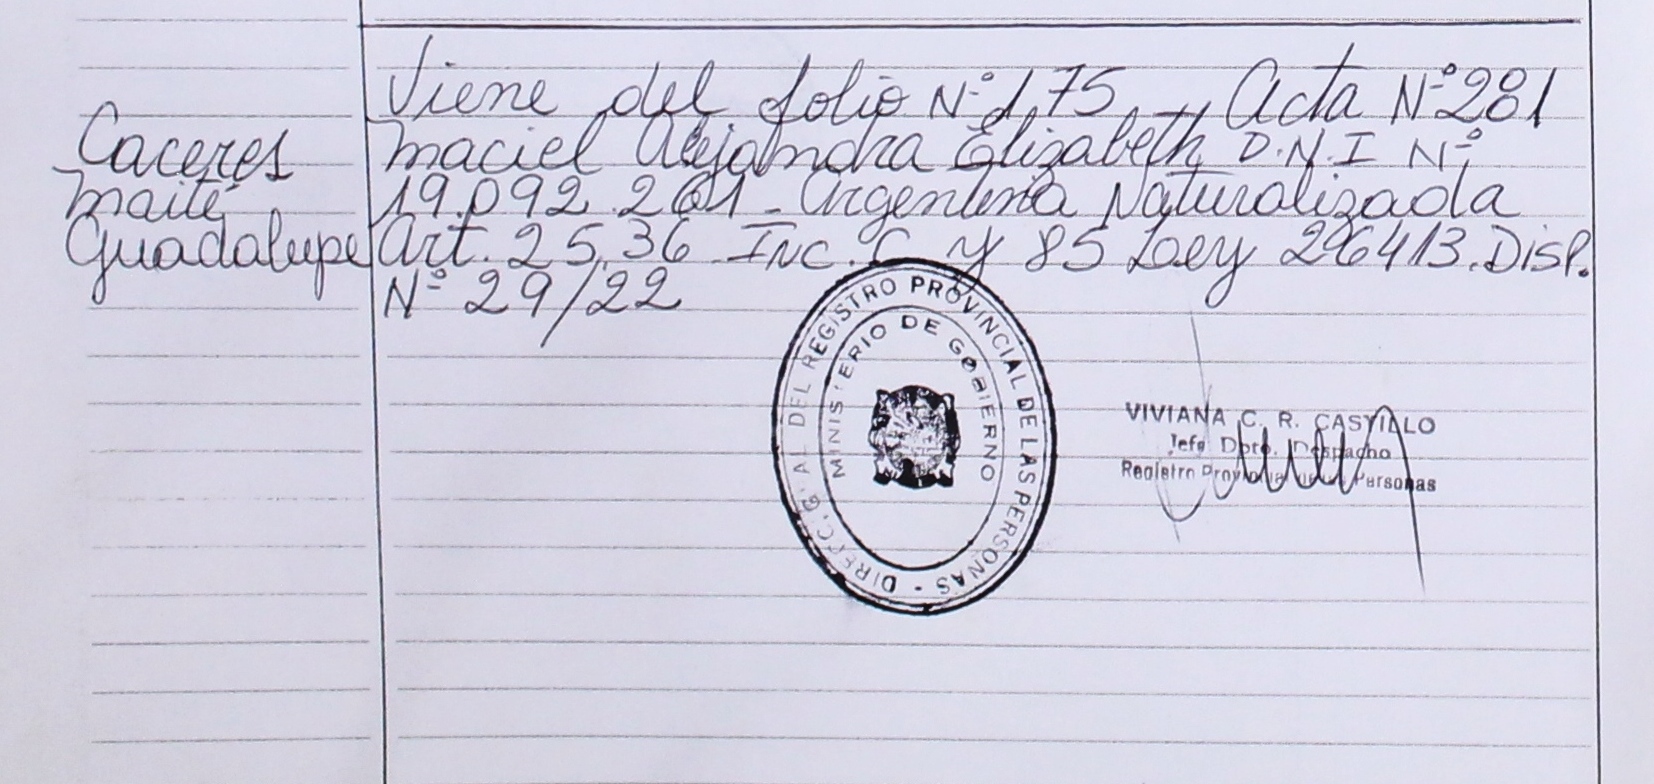 Viene del folio N° 175 Acta N° 281
Caceres
Maité
Guadalupe
Maciel Alejandra Elizabeth D.N.I N°
19.092.261 - Argentina Naturalizada
Art. 25, 36 Inc. C y 85 Ley 296413. Disp.
N° 29/22
DIREC. G AL DEL REGISTRO PROVINCIAL DE LAS PERSONAS -
MINISTERIO DE GOBIERNO
VIVIANA C. R. CASTILLO
Jefa Dpto. Despacho
Registro Provincial de las Personas